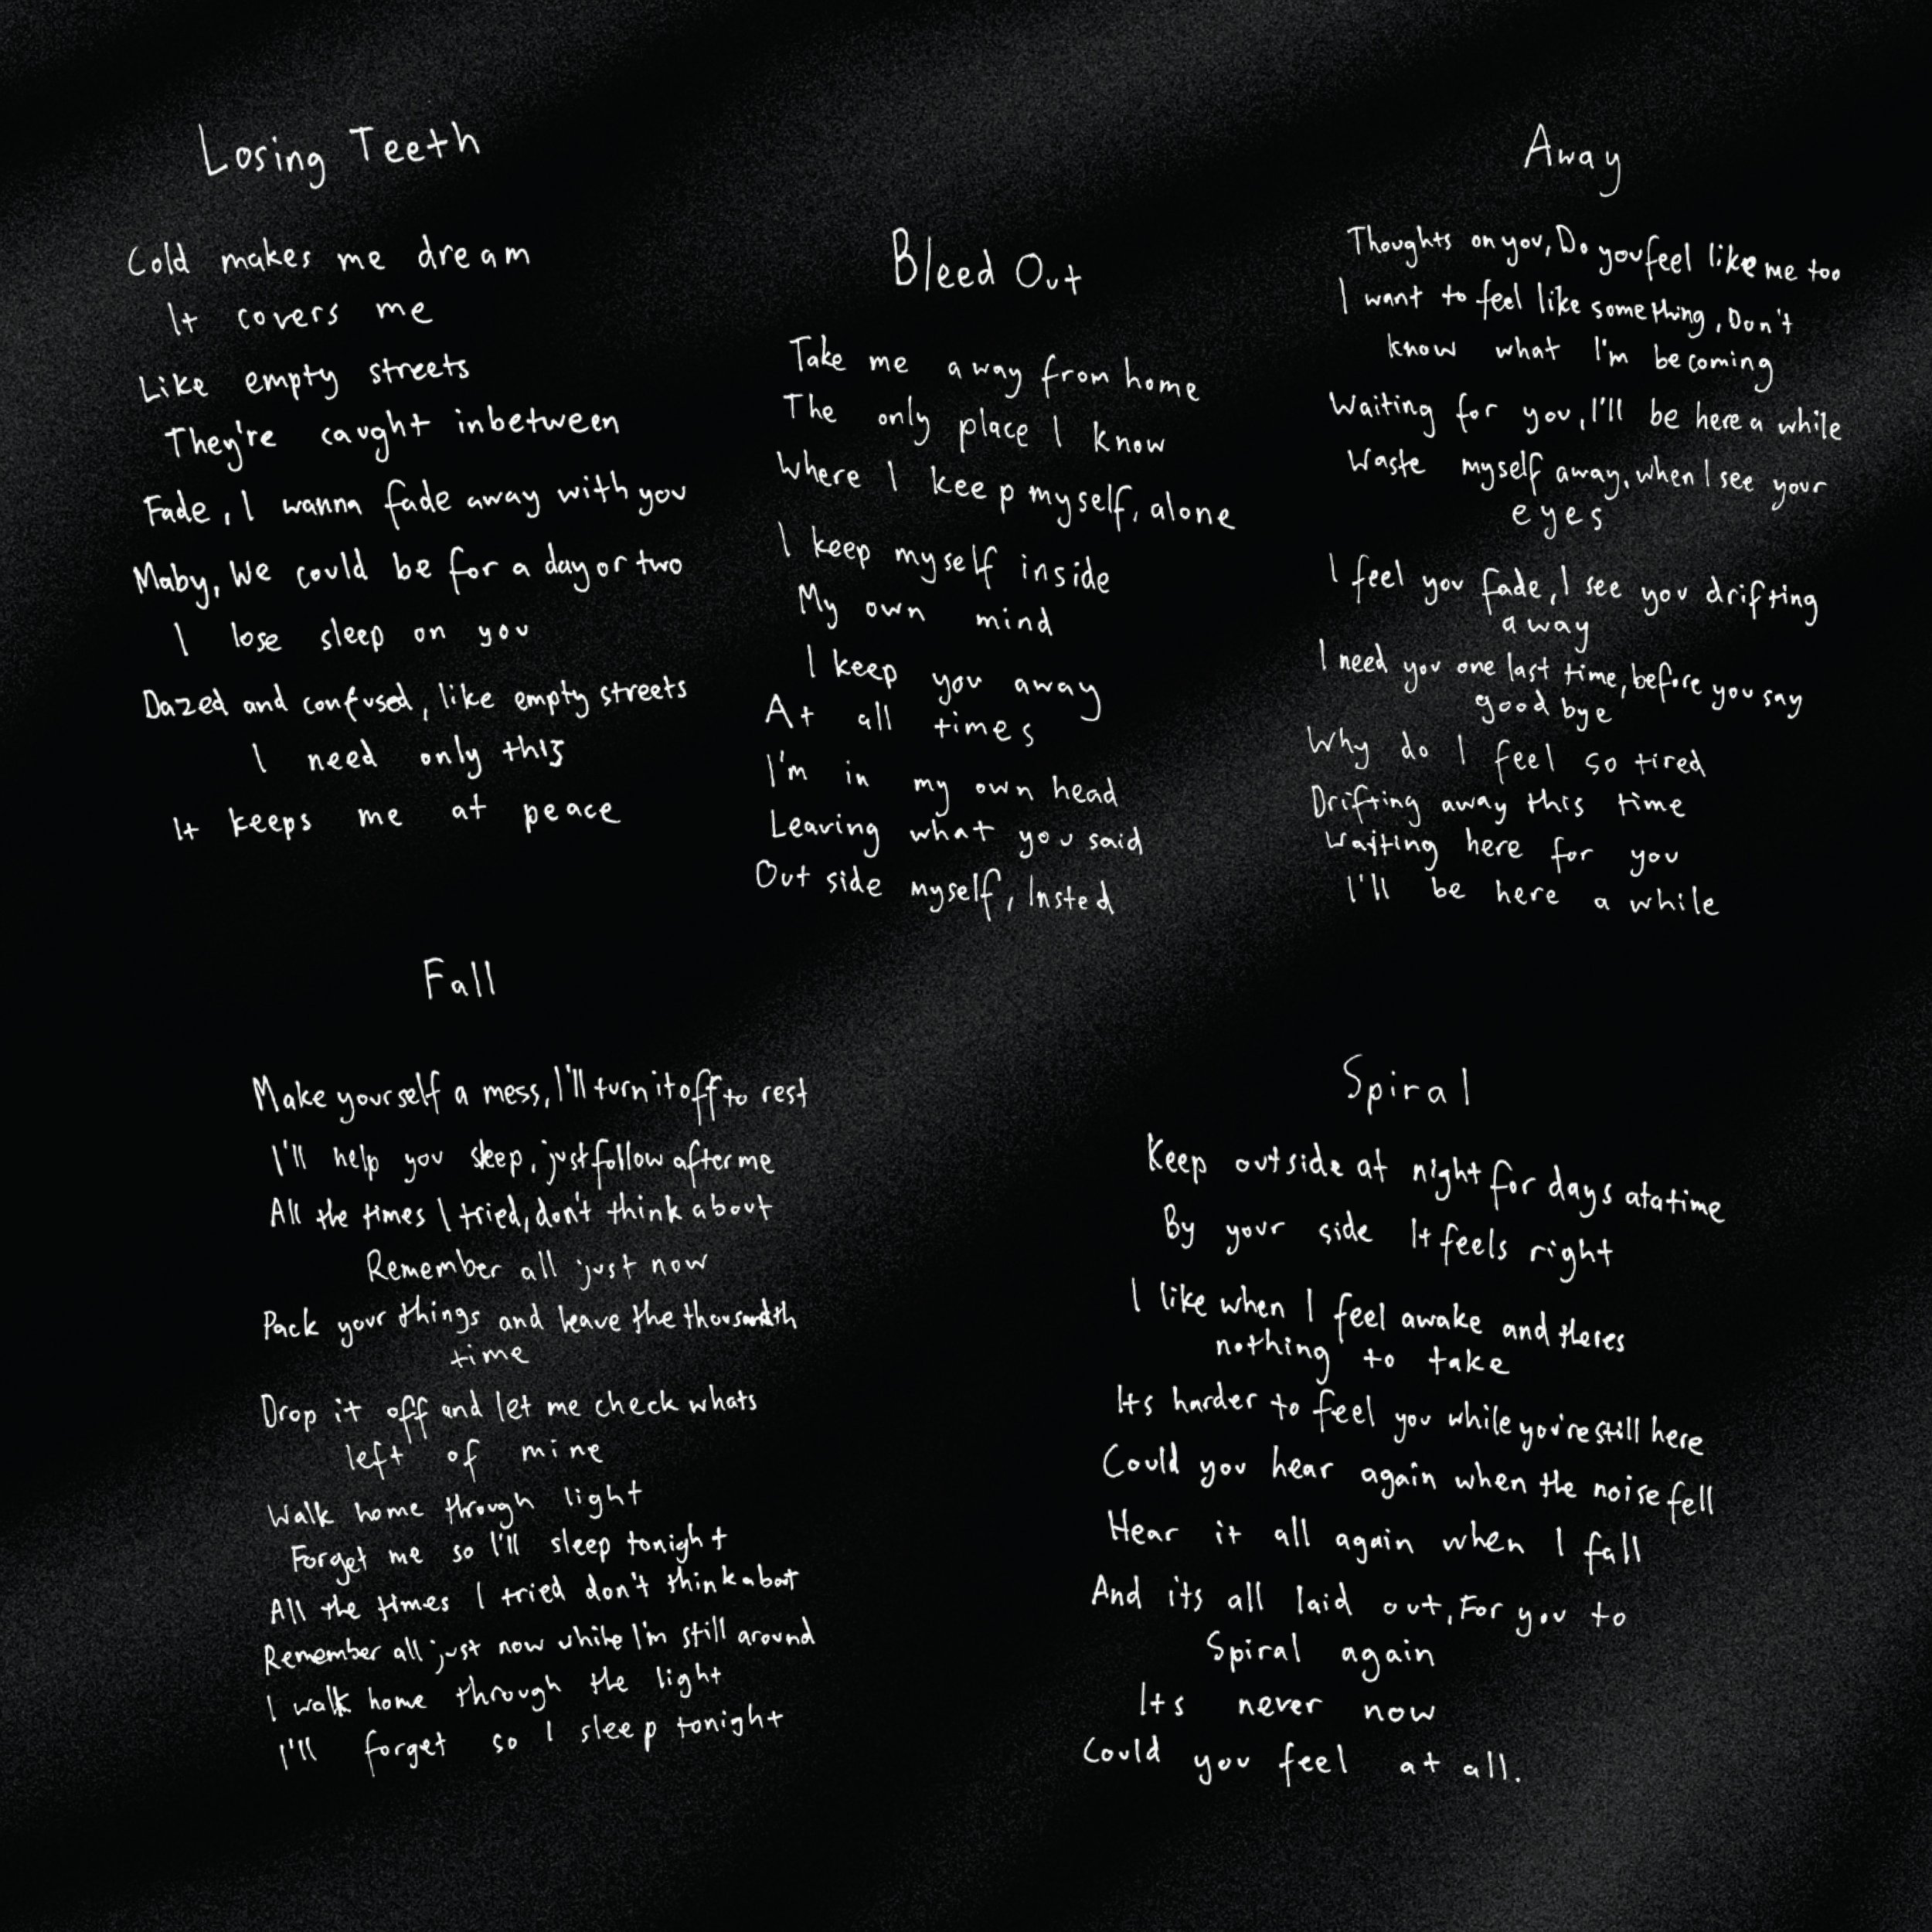 Losing Teeth
Cold makes me dream
It covers me
Like empty streets
They're caught inbetween
Fade, I wanna fade away with you
Maby, We could be for a day or two
I lose sleep on you
Dazed and confused, like empty streets
I need only this
It keeps me at peace
Bleed Out
Take me away from home
The only place I know
Where I keep myself, alone
I keep myself inside
My own mind
I keep you away
At all times
I'm in my own head
Leaving what you said
Out side myself, Insted
Away
Thoughts on you, Do you feel like me too
I want to feel like something, Don't
know what I'm becoming
Waiting for you, I'll be here a while
Waste myself away, when I see your
eyes
I feel you fade, I see you drifting
away
I need you one last time, before you say
good bye
Why do I feel so tired
Drifting away this time
Waiting here for you
I'll be here a while
Fall
Make yourself a mess, I'll turn it off to rest
I'll help you sleep, just follow after me
All the times I tried, don't think about
Remember all just now
Pack your things and leave the thousandth
time
Drop it off and let me check whats
left of mine
Walk home through light
Forget me so I'll sleep tonight
All the times I tried don't think abot
Remember all just now while I'm still around
I walk home through the light
I'll forget so I sleep tonight
Spiral
Keep outside at night for days at a time
By your side It feels right
I like when I feel awake and theres
nothing to take
Its harder to feel you while you're still here
Could you hear again when the noise fell
Hear it all again when I fall
And its all laid out, For you to
Spiral again
Its never now
Could you feel at all.